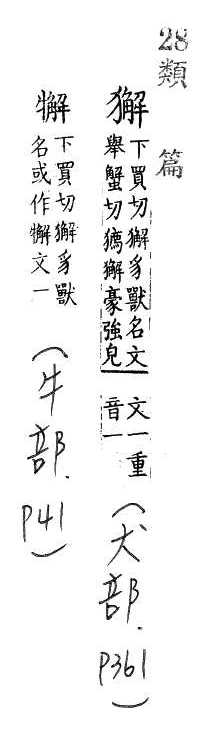 28 類篇
獬
下買切獬豸獸名文 文一重
舉蟹切獬豪強皃 音一
(犬部. P361)
㹑
下買切獬豸獸
名或作㹑文一
(牛部. P41)